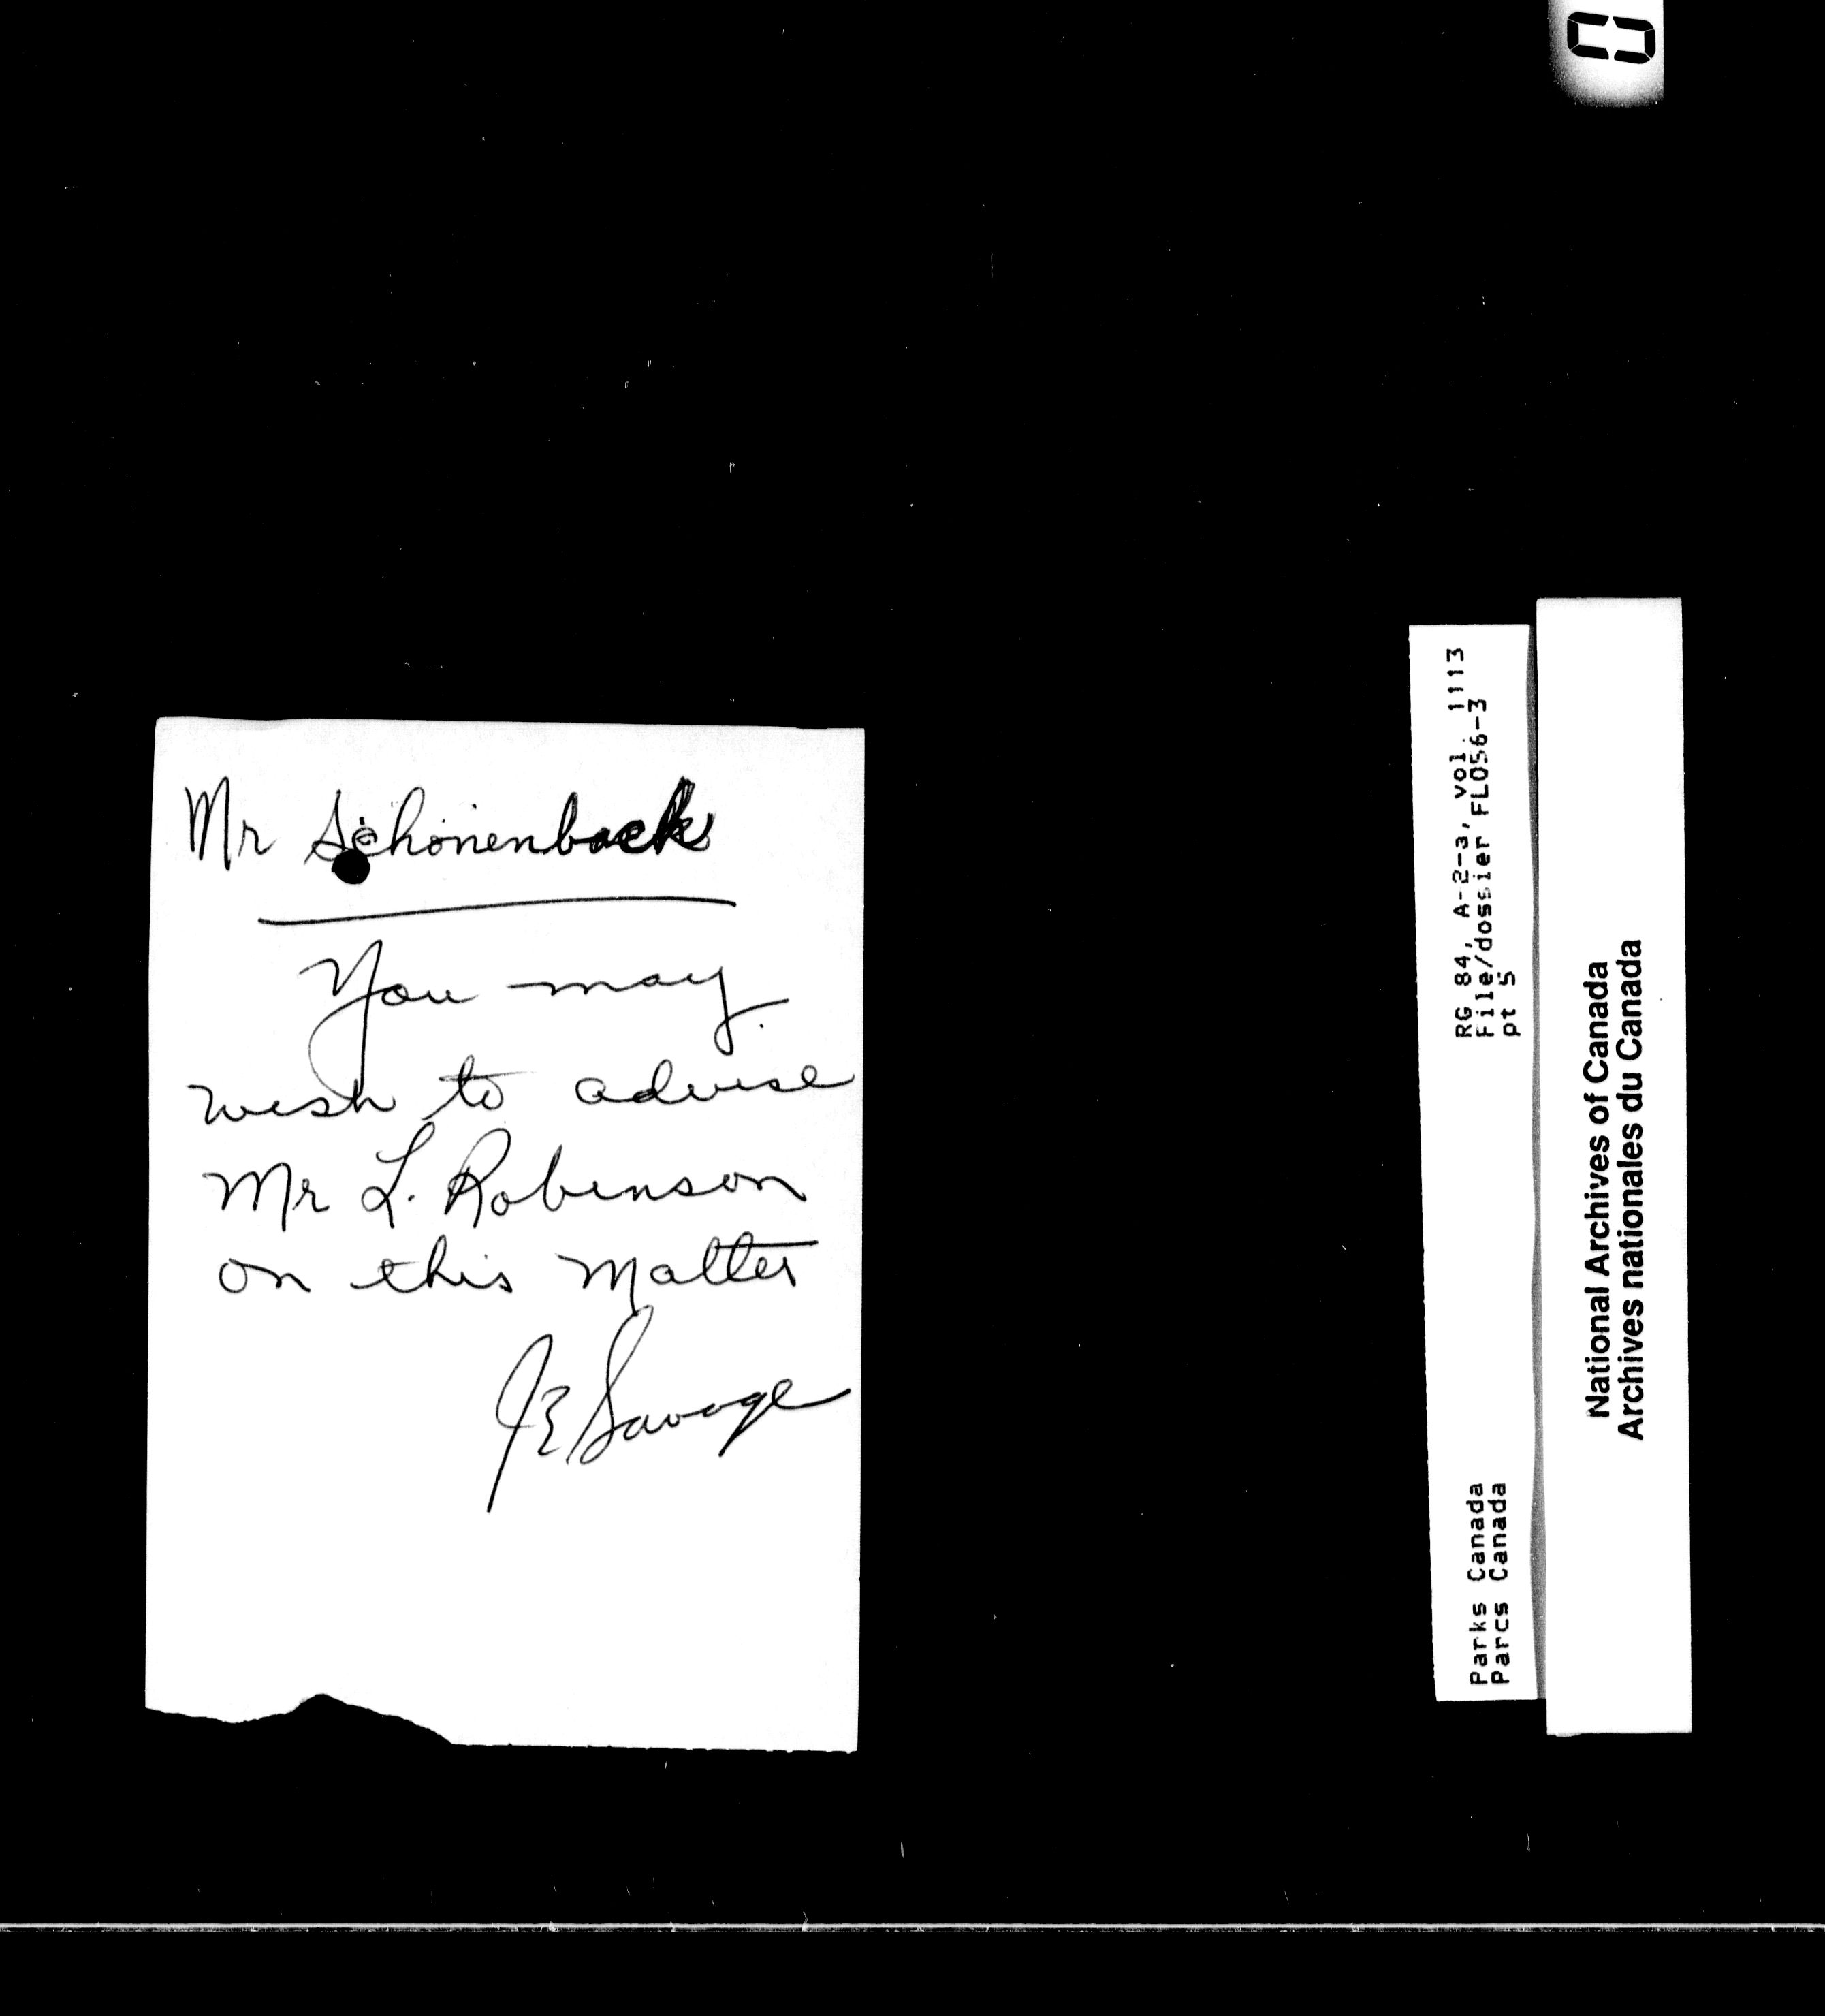 Mr Schonenback
You may
wish to advise
Mr L. Robinson
on this matter
JE Savage
RG 84, A-2-a, vol. 1113
File/dossier FLO56-3
pt 5
Parks Canada
Parcs Canada
National Archives of Canada
Archives nationales du Canada
0